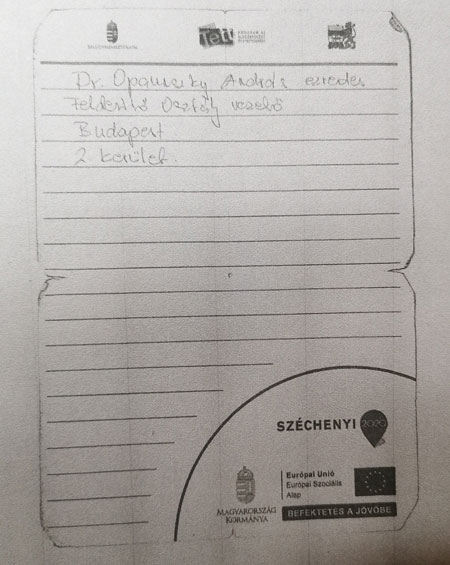 Tett
Dr. Opauszky András ezredes
Felderítő Osztály vezető
Budapest
2 kerület.
SZÉCHENYI 2020
MAGYARORSZÁG
KORMÁNYA
Európai Unió
Európai Szociális
Alap
BEFEKTETÉS A JÖVŐBE